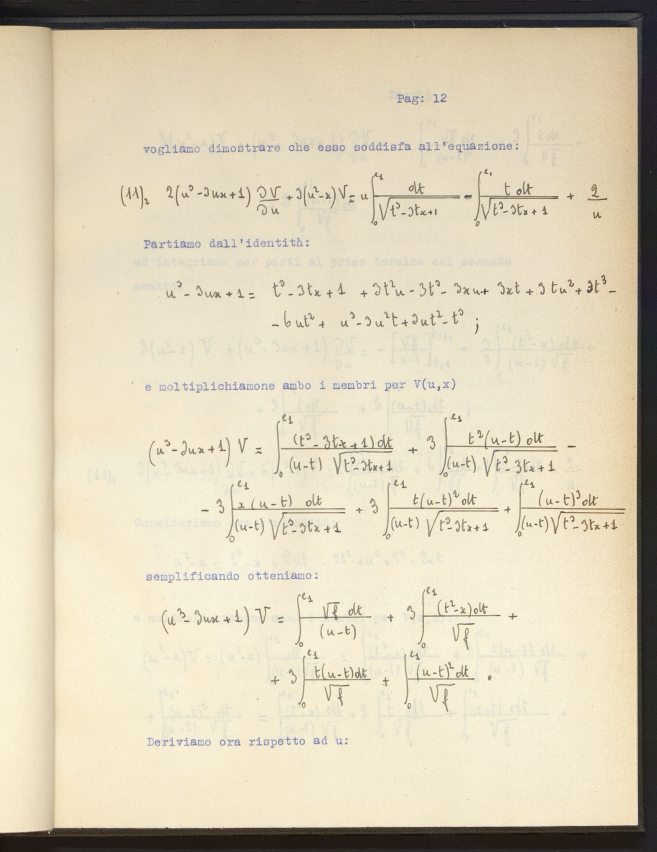 Pag: 12
vogliamo dimostrare che esso soddisfa all'equazione:
(11)₂ 2(u³-3ux+1) ∂V/∂u + 3(u²-x)V = u ∫₀^e₁ dt/√(t³-3tx+1) - ∫₀^e₁ t dt/√(t³-3tx+1) + 2/u
Partiamo dall'identità:
u³-3ux+1 = t³-3tx+1 +3t²u-3t³-3xu+3xt+3tu²+3t³-
-6ut²+u³-3u²t+3ut²-t³ ;
e moltiplichiamone ambo i membri per V(u,x)
(u³-3ux+1) V = ∫₀^e₁ (t³-3tx+1)dt/(u-t)√(t³-3tx+1) + 3 ∫₀^e₁ t²(u-t) dt/(u-t)√(t³-3tx+1) -
- 3 ∫₀^e₁ x(u-t) dt/(u-t)√(t³-3tx+1) + 3 ∫₀^e₁ t(u-t)² dt/(u-t)√(t³-3tx+1) + ∫₀^e₁ (u-t)³dt/(u-t)√(t³-3tx+1)
semplificando otteniamo:
(u³-3ux+1) V = ∫₀^e₁ √f dt/(u-t) + 3 ∫₀^e₁ (t²-x)dt/√f +
+ 3 ∫₀^e₁ t(u-t)dt/√f + ∫₀^e₁ (u-t)² dt/√f .
Deriviamo ora rispetto ad u: